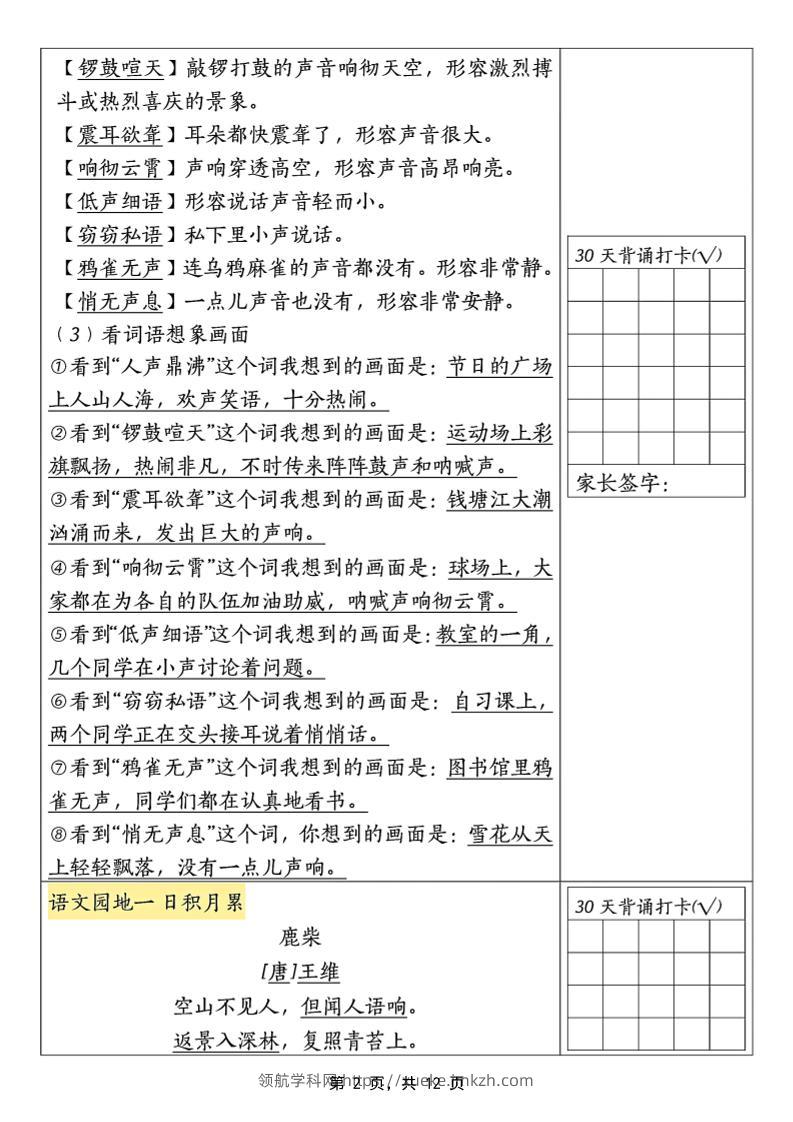 【锣鼓喧天】敲锣打鼓的声音响彻天空，形容激烈搏
斗或热烈喜庆的景象。
【震耳欲聋】耳朵都快震聋了，形容声音很大。
【响彻云霄】声响穿透高空，形容声音高昂响亮。
【低声细语】形容说话声音轻而小。
【窃窃私语】私下里小声说话。
【鸦雀无声】连乌鸦麻雀的声音都没有。形容非常静。
【悄无声息】一点儿声音也没有，形容非常安静。
（3）看词语想象画面
①看到“人声鼎沸”这个词我想到的画面是：节日的广场
上人山人海，欢声笑语，十分热闹。
②看到“锣鼓喧天”这个词我想到的画面是：运动场上彩
旗飘扬，热闹非凡，不时传来阵阵鼓声和呐喊声。
③看到“震耳欲聋”这个词我想到的画面是：钱塘江大潮
汹涌而来，发出巨大的声响。
④看到“响彻云霄”这个词我想到的画面是：球场上，大
家都在为各自的队伍加油助威，呐喊声响彻云霄。
⑤看到“低声细语”这个词我想到的画面是：教室的一角，
几个同学在小声讨论着问题。
⑥看到“窃窃私语”这个词我想到的画面是：自习课上，
两个同学正在交头接耳说着悄悄话。
⑦看到“鸦雀无声”这个词我想到的画面是：图书馆里鸦
雀无声，同学们都在认真地看书。
⑧看到“悄无声息”这个词，你想到的画面是：雪花从天
上轻轻飘落，没有一点儿声响。
30 天背诵打卡(√)
家长签字：
语文园地一 日积月累
鹿柴
[唐]王维
空山不见人，但闻人语响。
返景入深林，复照青苔上。
30 天背诵打卡(√)
领航学科网 https://xueke.lmkzh.com
第 2 页，共 12 页